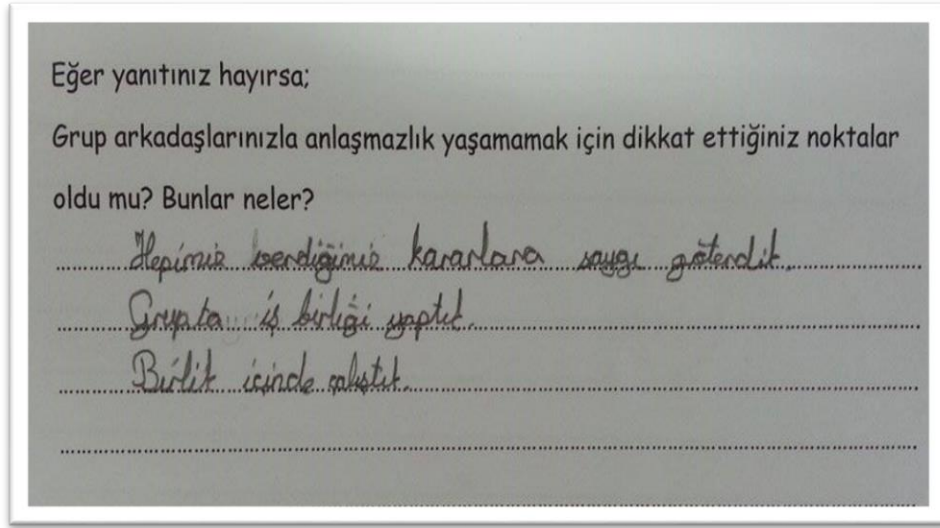 Eğer yanıtınız hayırsa;
Grup arkadaşlarınızla anlaşmazlık yaşamamak için dikkat ettiğiniz noktalar
oldu mu? Bunlar neler?
Hepimiz verdiğimiz kararlara saygı göterdik.
Grupta iş birliği yaptık.
Birlik içinde çalıştık.